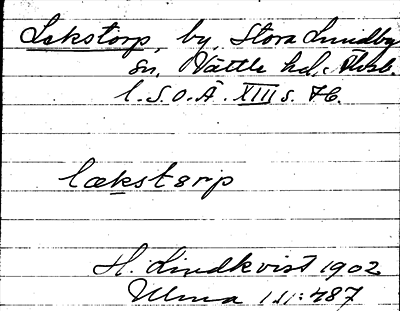 Lekstorp, by, Stora Lundby
sn, Vättle hd, Älvsb.
l. S.O.Ä. XIII s. 76.
lækstørp
H. Lindkvist 1902
Ulma 111:487